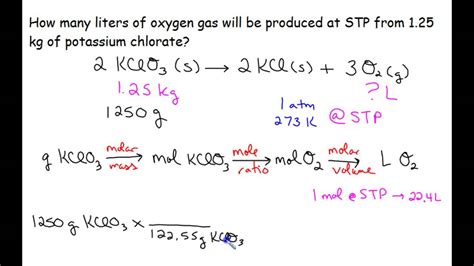 How many liters of oxygen gas will be produced at STP from 1.25
kg of potassium chlorate?
2 KClO3 (s) → 2 KCl(s) + 3 O2 (g)
1.25 kg ? L
1250 g 1 atm
273 K @ STP
molar mass mole ratio molar volume
g KClO3 → mol KClO3 → mol O2 → L O2
1 mol @ STP → 22.4L
1250 g KClO3 × 122.55 g KClO3